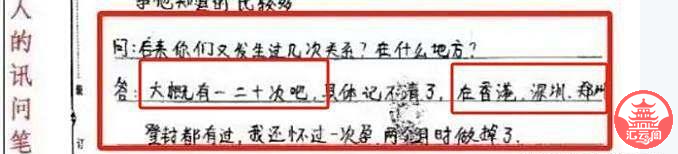 人的讯问笔
事他知道的比较多
问:后来你们又发生过几次关系?在什么地方?
答:大概有一二十次吧,具体记不清了,在香港、深圳、郑州
登封都有过,我还怀过一次孕,两个月时做掉了.
订
汇云阁